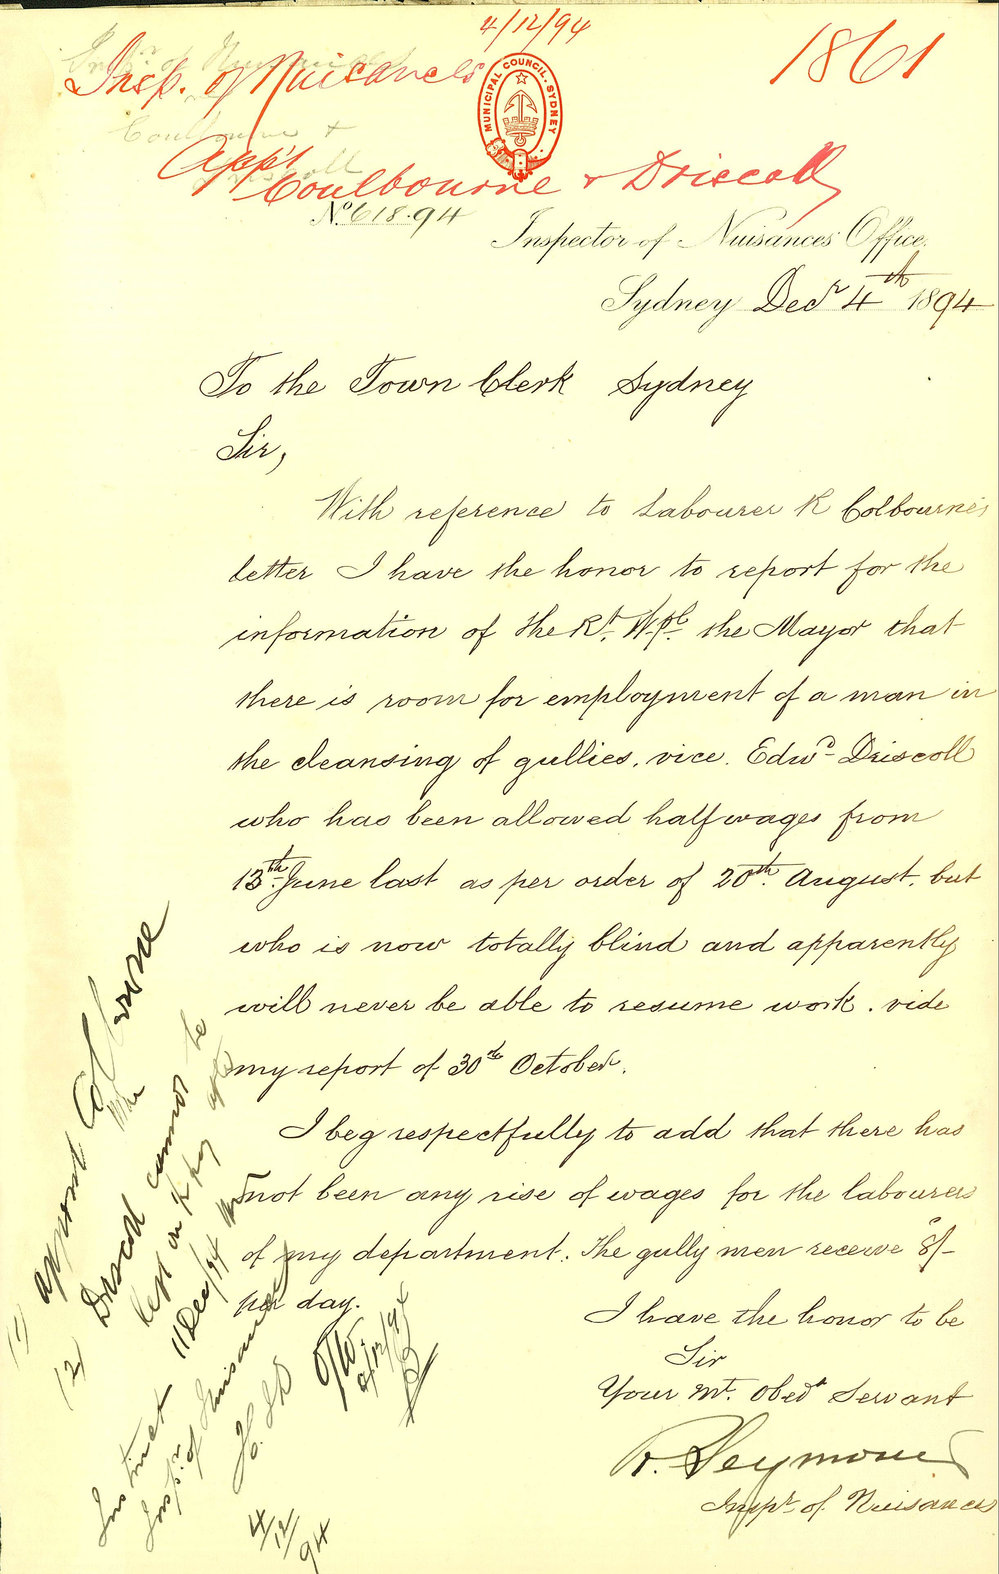 4/12/94
1861
Insp. of Nuisances
MUNICIPAL COUNCIL. SYDNEY
App's
Coulbourne & Driscoll
No. 618.94
Inspector of Nuisances Office,
Sydney Decr 4th 1894
To the Town Clerk Sydney
Sir,
With reference to Labourer R Colbourne's
letter I have the honor to report for the
information of the Rt. Wpl. the Mayor that
there is room for employment of a man in
the cleansing of gullies, vice. Edwd. Driscoll
who has been allowed half wages from
13th June last as per order of 20th August, but
who is now totally blind and apparently
will never be able to resume work. vide
my report of 30th October.
I beg respectfully to add that there has
not been any rise of wages for the labourers
of my department. The gully men receive 8/-
per day.
I have the honor to be
Sir
Your Mt. Obedt Servant
R. Seymour
Inspr. of Nuisances
(1) appoint Colbourne
(2) Driscoll cannot be
kept on pay after
11 Dec/94
Instruct
Inspr. of Nuisances
4/12/94